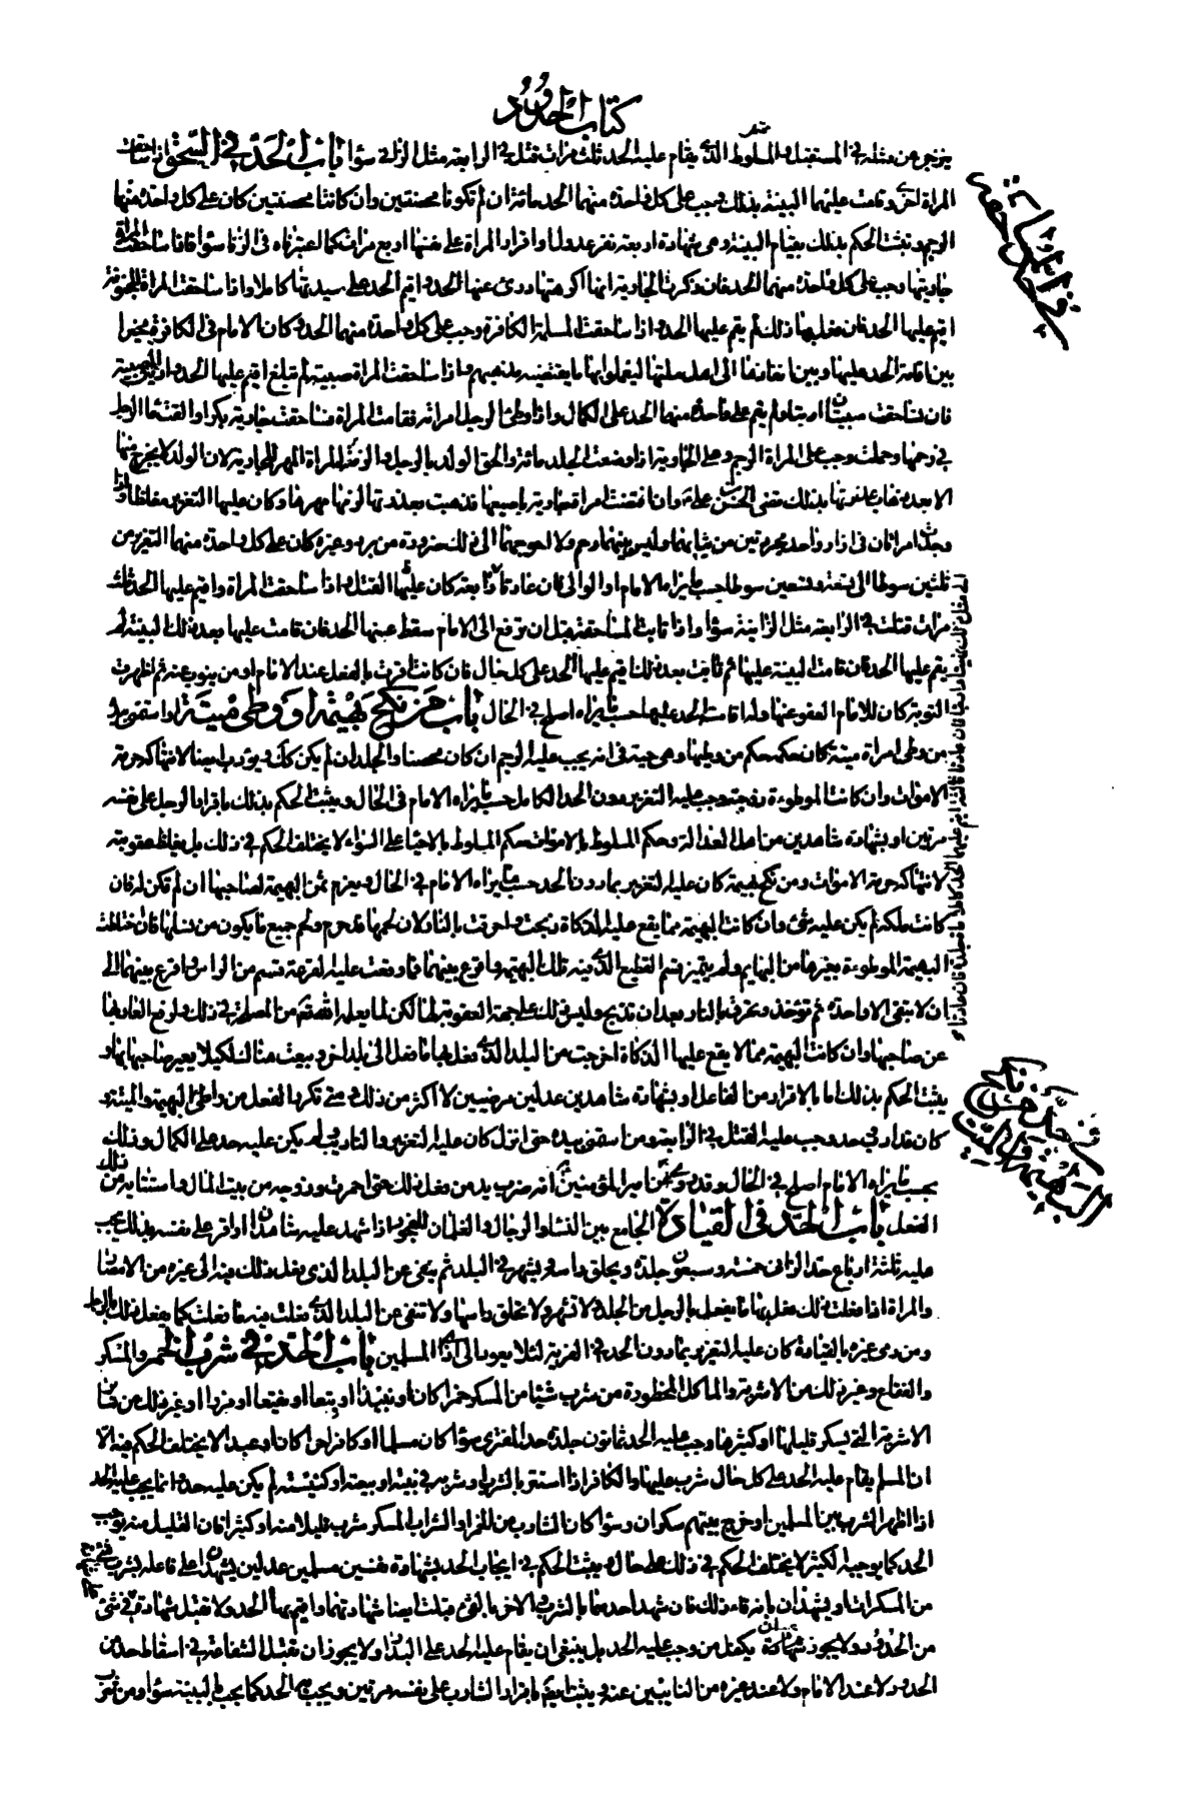 كتاب الحدود
ينزجر عن مثله في المستقبل والمتلوط الذي يقام عليه الحد ثلث مرات قتل في الرابعة مثل الزاني سواء باب الحد في السحق اذا ساحقت
المراة اخرى وقامت عليهما البينة بذلك وجب على كل واحدة منهما الحد مائة ان لم تكونا محصنتين وان كانتا محصنتين كان على كل واحدة منهما
الرجم ويثبت الحكم بذلك بقيام البينة وهي شهادة اربعة نفر عدول او اقرار المراة على نفسها اربع مرات كما اعتبرناه في الزنا سواء فاذا ساحقت المراة
جاريتها وجب على كل واحدة منهما الحد فان ذكرت الجارية انها اكرهتها درئ عنها الحد واقيم الحد على سيدتها كاملا واذا ساحقت المراة المجنونة
اقيم عليها الحد فان فعل بها ذلك لم يقم عليها الحد واذا ساحقت المسلمة الكافرة وجب على كل واحدة منهما الحد وكان الامام في الكافرة مخيرا
بين اقامة الحد عليها وبين انفاذها الى اهل ملتها ليعملوا بها ما يقتضيه مذهبهم واذا ساحقت المراة صبية لم تبلغ اقيم عليها الحد وادبت الصبية
فان تساحقت صبيتان ادبتا ولم يقم على واحدة منهما الحد على الكمال واذا وطئ الرجل امراته فقامت المراة فساحقت جارية بكرا والقت ماء الرجل
في رحمها وحملت وجب على المراة الرجم وعلى الجارية اذا وضعت الجلد مائة والحق الولد بالرجل والزمت المراة المهر للجارية لان الولد لا يخرج منها
الا بعد ذهاب عذرتها بذلك قضى الحسن بن علي وان افتضت امراة جارية باصبعها فذهبت بعذرتها لزمها مهرها وكان عليها التعزير مغلظا واذا
وجدت امراتان في ازار واحد مجردتين من ثيابهما وليس بينهما رحم ولا احوجهما الى ذلك ضرورة من برد وغيره كان على كل واحدة منهما التعزير من
ثلثين سوطا الى تسعة وتسعين سوطا حسب ما يراه الامام او الوالي فان عادتا رابعة كان عليهما القتل واذا ساحقت المراة واقيم عليها الحد ثلث
مرات قتلت في الرابعة مثل الزانية سواء واذا تابت المساحقة قبل ان ترفع الى الامام سقط عنها الحد فان قامت عليها بعد ذلك البينة لم
يقم عليها الحد فان قامت البينة عليها ثم تابت بعد ذلك اقيم عليها الحد على كل حال فان كانت اقرت بالفعل عند الامام او من ينوب عنه ثم اظهرت
التوبة كان للامام العفو عنها وله اقامة الحد عليها حسب ما يراه اصلح في الحال باب من نكح بهيمة او وطئ ميتة او استمنى بيده
من وطئ امراة ميتة كان حكمه حكم من وطئها وهي حية في انه يجب عليه الرجم ان كان محصنا والجلد ان لم يكن كذلك ويؤدب ايضا لانتهاك حرمة
الاموات وان كانت الموطوءة زوجته وجب عليه التعزير دون الحد الكامل حسب ما يراه الامام في الحال ويثبت الحكم بذلك باقرار الرجل على نفسه
مرتين او بشهادة شاهدين من اهل العدالة وحكم المتلوط بالاموات حكم المتلوط بالاحياء على السواء لا يختلف الحكم في ذلك بل يغلظ عقوبته
لانتهاكه حرمة الاموات ومن نكح بهيمة كان عليه التعزير بما دون الحد حسب ما يراه الامام في الحال ويغرم ثمن البهيمة لصاحبها ان لم تكن له فان
كانت ملكه لم يكن عليه شئ وان كانت البهيمة مما يقع عليها الذكاة ذبحت واحرقت بالنار لان لحمها قد حرم ولحم جميع ما يكون من نسلها فان اختلطت
البهيمة الموطوءة بغيرها من البهايم ولم يتميز قسم القطيع الذي فيه تلك البهيمة واقرع بينهما فما وقعت عليه القرعة قسم من الراس واقرع بينهما الى
ان لا يبقى الا واحدة ثم تؤخذ وتحرق بالنار بعد ان تذبح وليس ذلك على جهة العقوبة لها لكن لما يعلم الله تعالى من المصلحة في ذلك ولرفع العار بها
عن صاحبها وان كانت البهيمة مما لا يقع عليها الذكاة اخرجت من البلد الذي فعل بها ما فعل الى بلد اخر وبيعت هناك لكيلا يعير صاحبها بها و
يثبت الحكم بذلك اما بالاقرار من الفاعل او بشهادة شاهدين عدلين مرضيين لا اكثر من ذلك ومتى تكرر الفعل من واطئ البهيمة والميتة و
كان قد ادب وحد وجب عليه القتل في الرابعة ومن استمنى بيده حتى انزل كان عليه التعزير والتاديب ولم يكن عليه حد على الكمال وذلك
بحسب ما يراه الامام اصلح في الحال وقد روى عن امير المؤمنين انه ضرب يد من فعل ذلك حتى احمرت وزوجه من بيت المال واستتابه من ذلك
الفعل باب الحد في القيادة الجامع بين النساء والرجال والغلمان للفجور اذا شهد عليه شاهدان او اقر على نفسه بذلك يجب
عليه ثلثة ارباع حد الزاني خمسة وسبعون جلدة ويحلق راسه ويشهر في البلد ثم ينفى عن البلد الذي يفعل ذلك فيه الى غيره من الامصار
والمراة اذا فعلت ذلك فعل بها ما يفعل بالرجل من الجلد ولا تشهر ولا يحلق راسها ولا تنفى عن البلد الذي فعلت فيه ما فعلت كما يفعل ذلك بالرجل
ومن رمى غيره بالقيادة كان عليه التعزير بما دون الحد في الفرية لئلا يعود الى اذى المسلمين باب الحد في شرب الخمر والمسكر
والفقاع وغير ذلك من الاشربة والماكل المحظورة من شرب شيئا من المسكر خمرا كان او نبيذا او بتعا او نقيعا او مزرا او غير ذلك من سائر
الاشربة التي يسكر قليلها او كثيرها وجب عليه الحد ثمانون جلدة حد المفتري سواء كان مسلما او كافرا حرا كان او عبدا لا يختلف الحكم فيه الا
ان المسلم يقام عليه الحد على كل حال شرب عليها والكافر اذا استتر بالشرب او شربه في بيته او بيعته او كنيسته لم يكن عليه حد وانما يجب عليه الحد
اذا اظهر الشرب بين المسلمين او خرج بينهم سكران وسواء كان الشارب من الخمر او الشراب المسكر شرب قليلا منه او كثيرا فان القليل منه يوجب
الحد كما يوجبه الكثير لا يختلف الحكم في ذلك على حال ويثبت الحكم في ايجاب الحد بشهادة نفسين مسلمين عدلين يشهدان على فاعله بشرب شئ
من المسكرات او يشهدان بانه قاء ذلك فان شهد احدهما بالشرب والاخر بالقئ قبلت ايضا شهادتهما واقيم بها الحد ولا تقبل شهادة في شئ
من الحدود ولا يجوز ان يكفل من وجب عليه الحد بل ينبغي ان يقام عليه الحد على البدار ولا يجوز ان تقبل الشفاعة في اسقاط حد من
الحدود لا عند الامام ولا عند غيره من النائبين عنه ويثبت ايضا باقرار الشارب على نفسه مرتين ويجب به الحد كما يجب بالبينة سواء ومن شرب